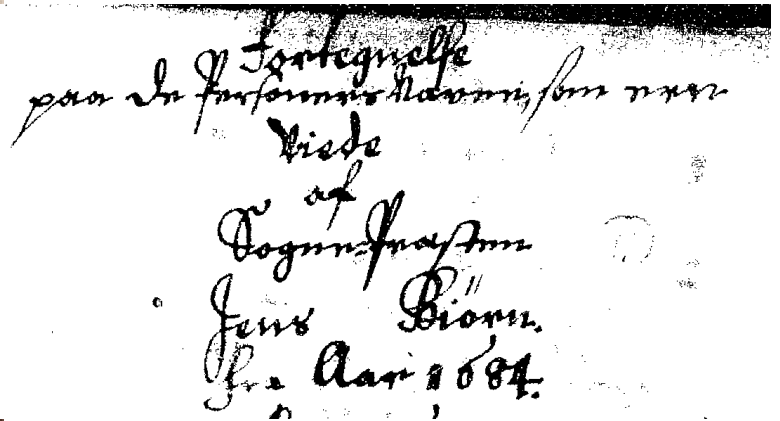 Fortegnelse
paa de Persohners Navne, som ere
Viede
af
Sogne-Præsten
Jens Biörn.
fra Aar 1684.